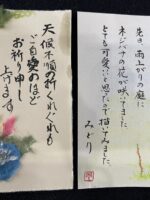 先日、雨上がりの庭に
ネジバナの花が咲いてました
とても可愛いと思ったので描いてみました
みどり
天候不順の折くれぐれも
ご自愛のほど
お祈り申し
上げます